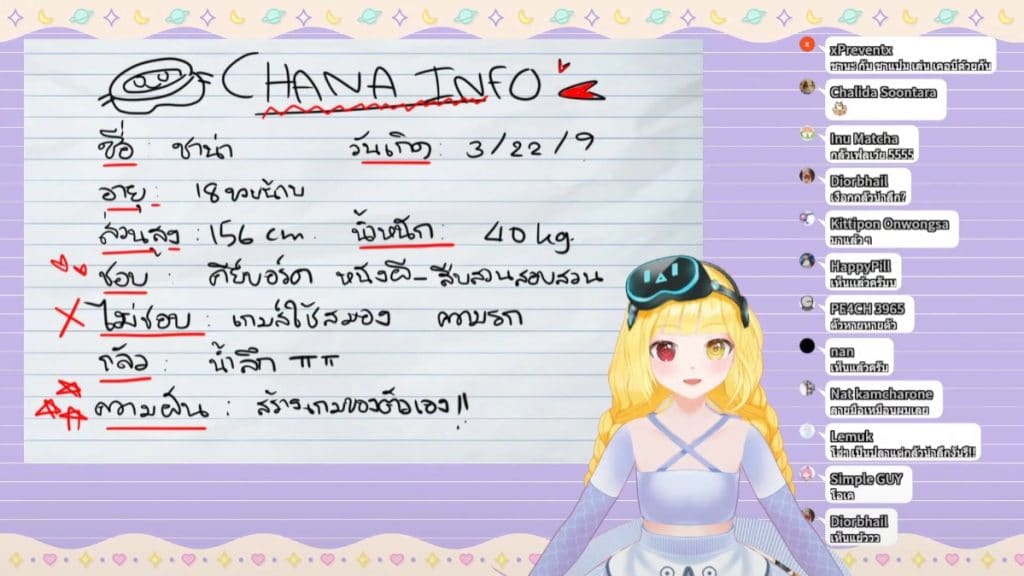 CHANA INFO
ชื่อ : ชาน่า วันเกิด : 3/22/9
อายุ : 18
ส่วนสูง : 156 cm. น้ำหนัก : 40 kg.
ชอบ : คีย์บอร์ด หนังผี - สืบสวนสอบสวน
ไม่ชอบ : เกมส์ใช้สมอง ความรก
กลัว : น้ำลึก TT
ความฝัน : สร้างเกมของตัวเอง!!
xPreventx
ชานะ กับ ชาแปม เล่น เคอบีด้วยกัน
Chalida Soontara
Inu Matcha
5555
Diorbhail
Kittipon Onwongsa
มาแล้วๆ
HappyPill
เห็นแล้วครับบ
PE4CH 3965
ตัวหายหายตัว
nan
เห็นแล้วครับ
Nat kamcharone
ลายมือเหมือนผมเลย
Lemuk
Simple GUY
โอเค
Diorbhail
เห็นแล้ววว